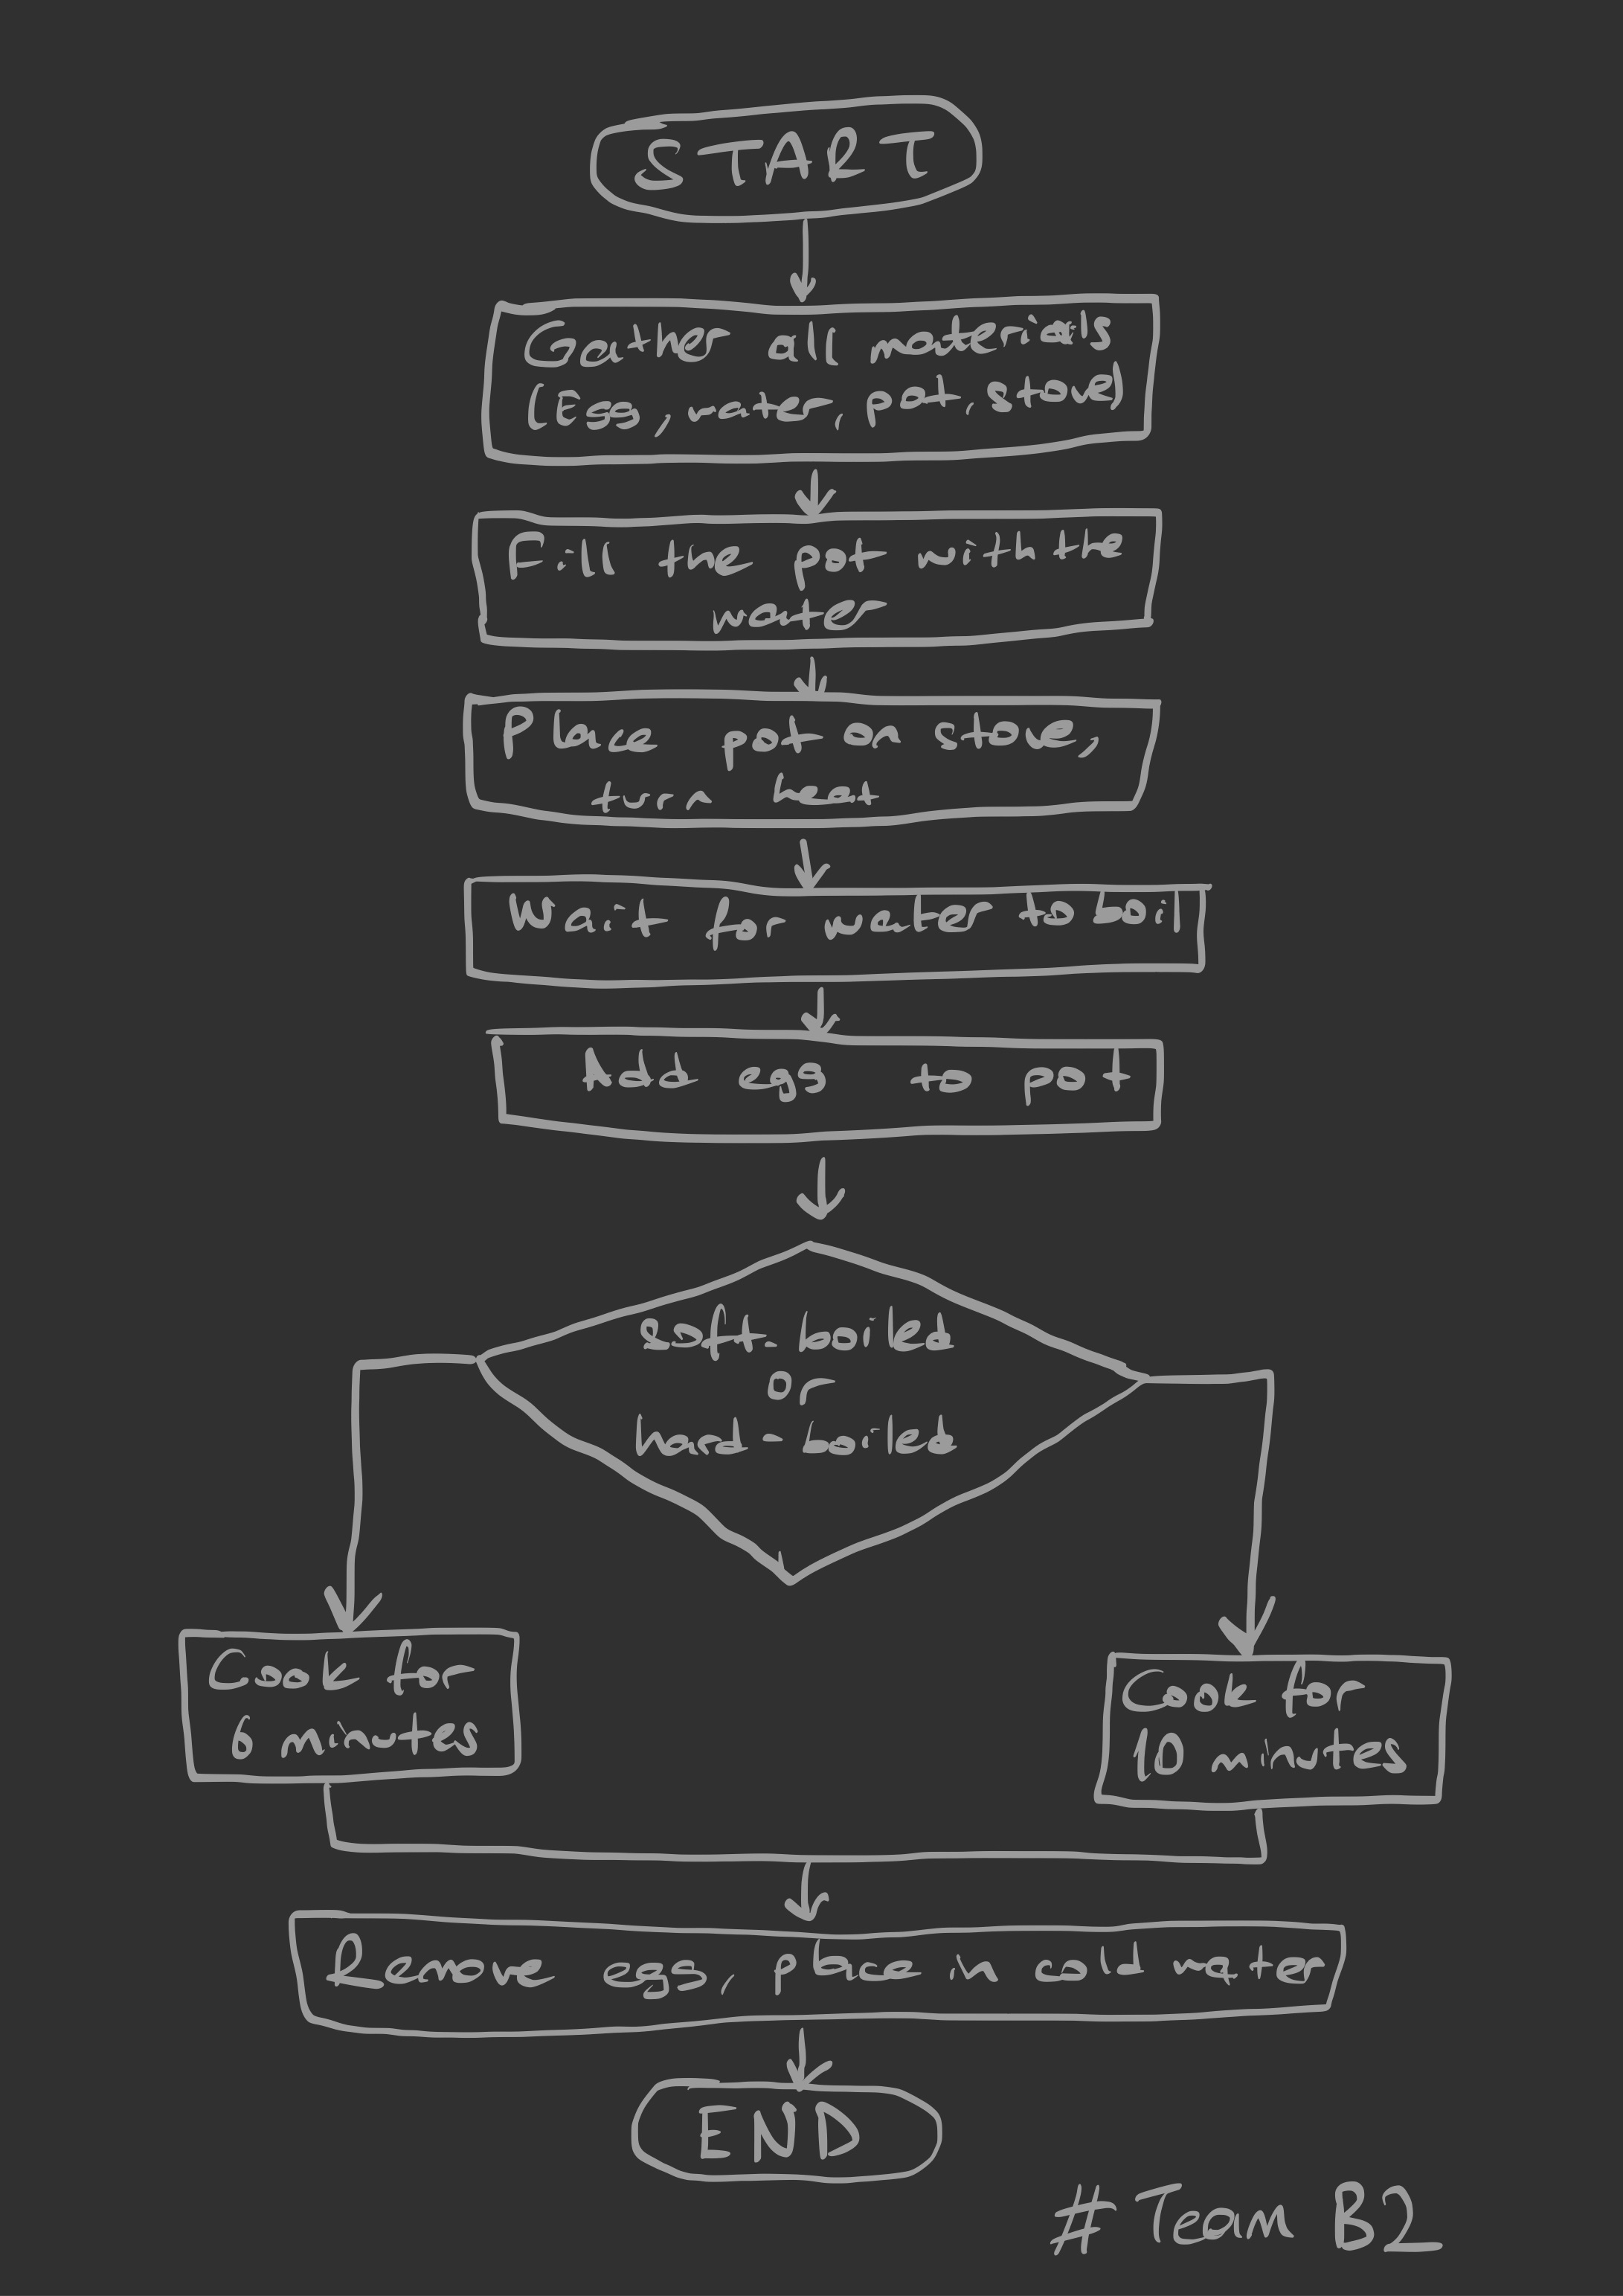 START
Gather all materials
(Eggs, water, pot, stove)
Fill the pot with the
water
Place pot on stove,
turn heat
Wait for water to boil
Add eggs to pot
Soft-boiled
or
Hard-boiled
Cook for
6 minutes
Cook for
10 minutes
Remove eggs, place in cold water
END
# Team B2